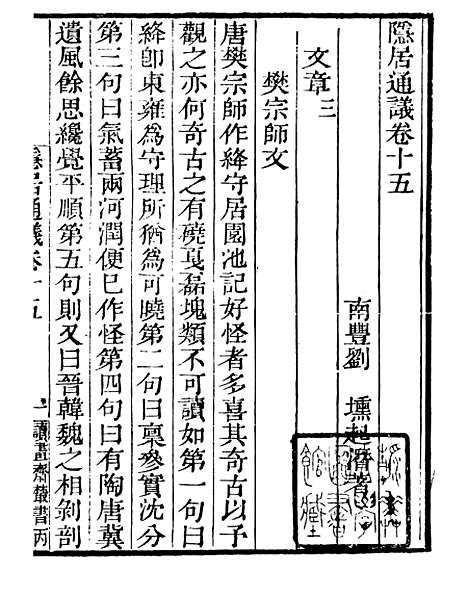 隱居通議卷十五
南豐劉　壎起潛著
文章三
樊宗師文
唐樊宗師作絳守居園池記好怪者多喜其奇古以予
觀之亦何奇古之有磽戛磊塊類不可讀如第一句曰
絳卽東雍爲守理所猶爲可曉第二句曰稟參實沈分
第三句曰氣蓄兩河潤便已作怪第四句曰有陶唐冀
遺風餘思纔覺平順第五句則又曰晉韓魏之相剝剖
隱居通議卷十五
一
讀畫齋叢書丙